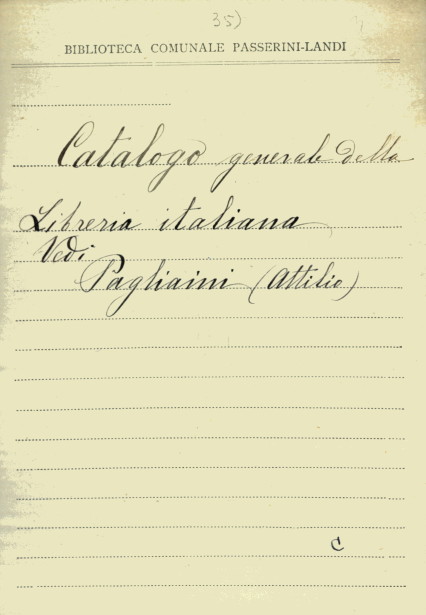 35)
BIBLIOTECA COMUNALE PASSERINI-LANDI
Catalogo generale della
Libreria italiana
Vedi
Pagliaini (Attilio)
C